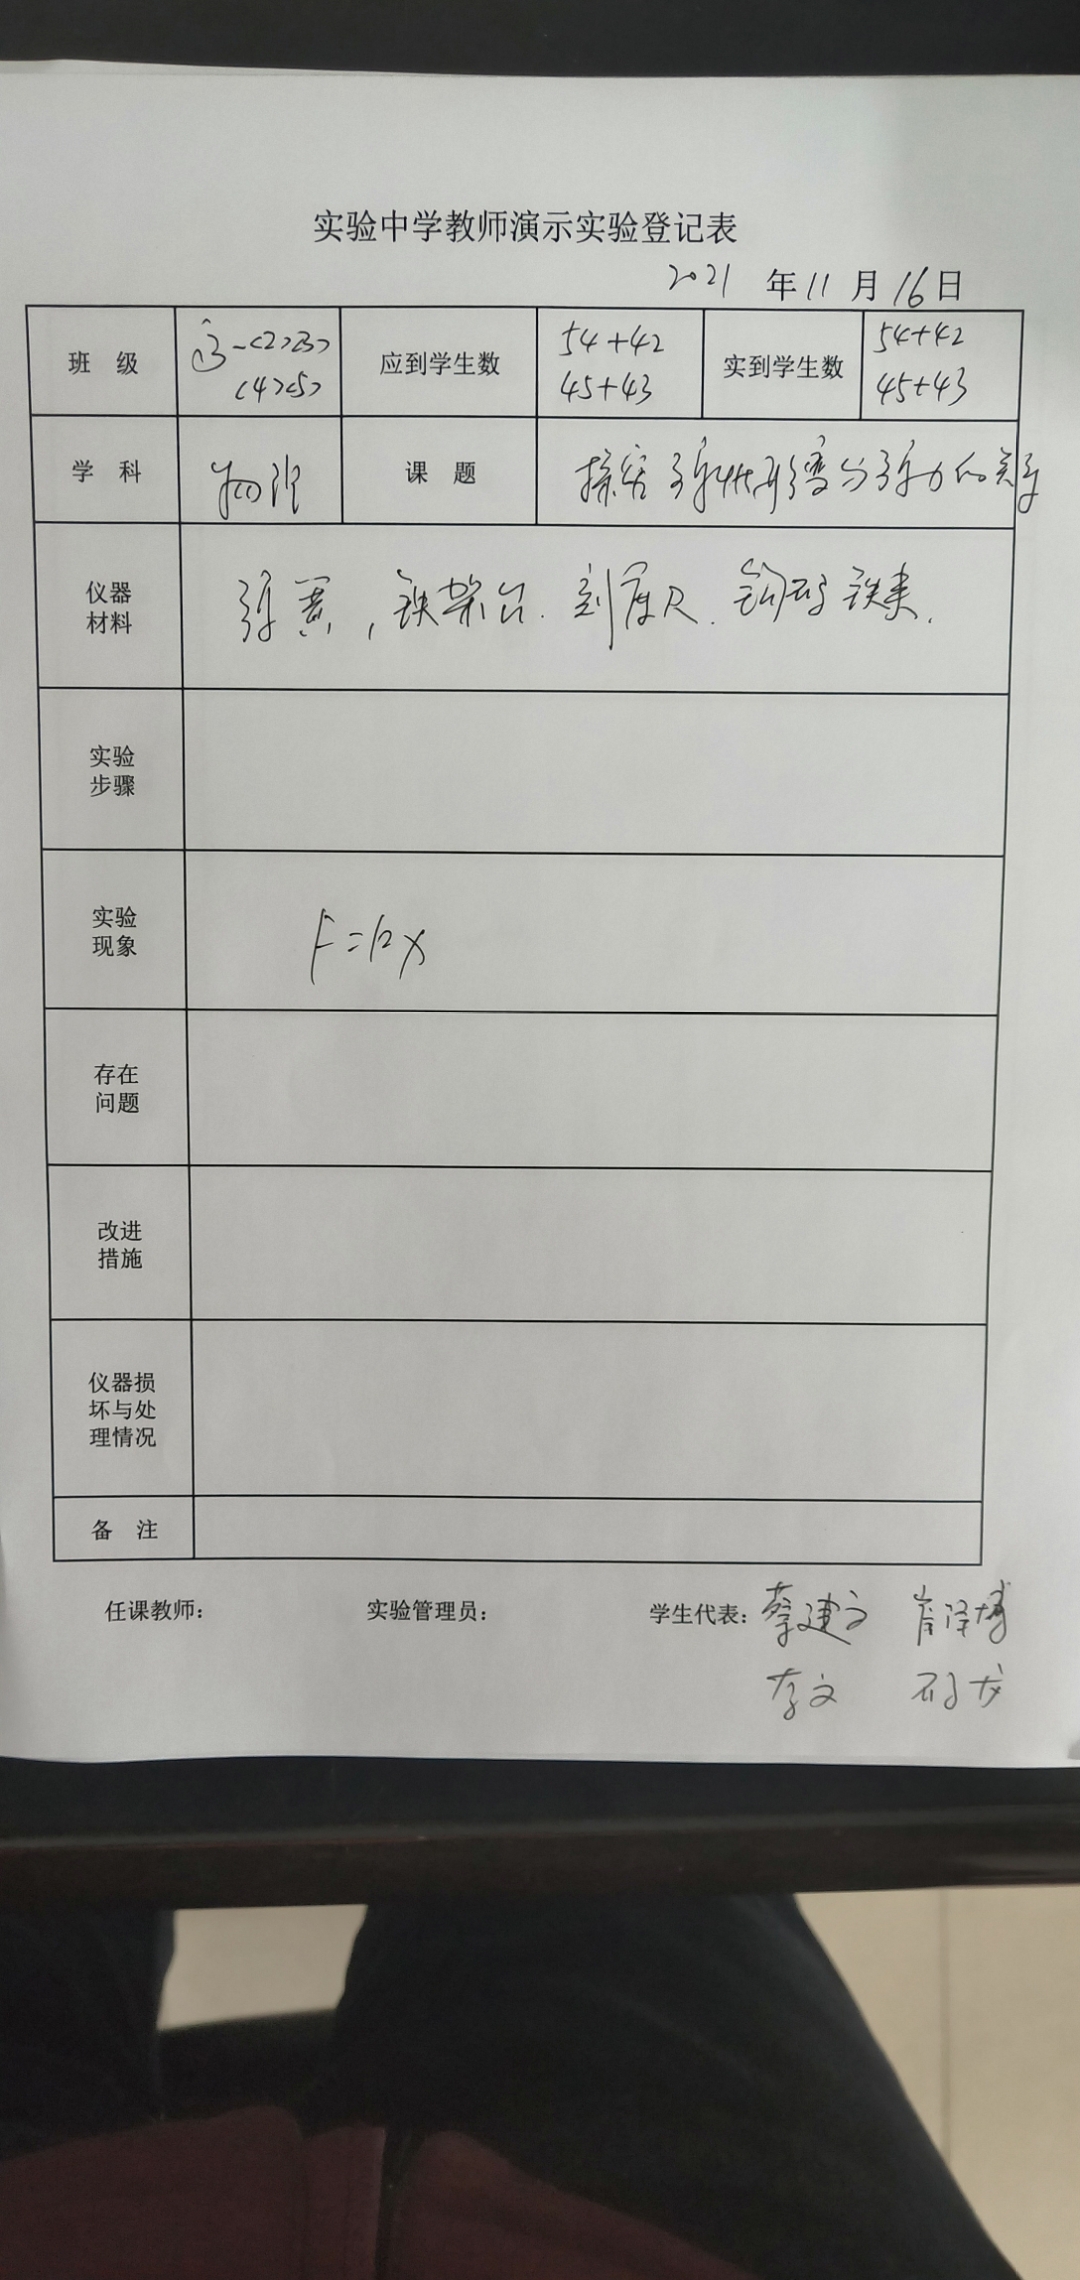 实验中学教师演示实验登记表
2021 年 11 月 16 日
班 级 高一<2><3> 应到学生数 54+42 实到学生数 54+42
<4><5> 45+43 45+43
学 科 物理 课 题 探究弹性形变与弹力的关系
仪器
材料
弹簧,铁架台.刻度尺.钩码 铁夹.
实验
步骤
实验
现象
F=kx
存在
问题
改进
措施
仪器损
坏与处
理情况
备 注
任课教师: 实验管理员: 学生代表: 蔡建文 崔泽博
李文